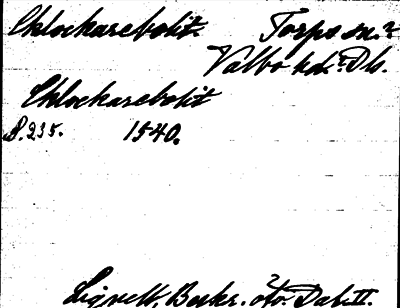 Cklockarebolit. Torps sn.?
Valbo hd. Ds.
Cklockarebolit
S. 235. 1540.
Lignell, Beskr. ö. Dal. II.